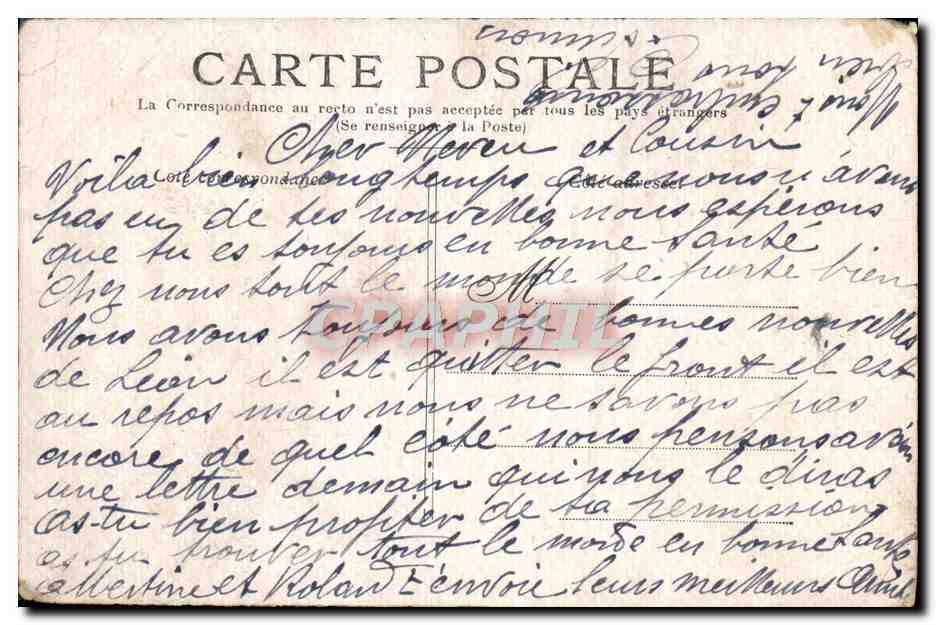 CARTE POSTALE
La Correspondance au recto n'est pas acceptée par tous les pays étrangers
(Se renseigner à la Poste)
Cher Neveu et Cousin
Côté correspondance
Côté adresse
Voila bien longtemps que nous n'avons
pas eu de tes nouvelles nous espérons
que tu es toujours en bonne santé
Chez nous tout le monde se porte bien
M
CPAPHIL
Nous avons toujours de bonnes nouvelles
de Léon il est quitter le front il est
au repos mais nous ne savons pas
encore de quel côté nous pensons avoir
une lettre demain qui nous le diras
as-tu bien profiter de ta permission
as tu trouver tout le monde en bonne santé
Albertine et Roland t'envoie leurs meilleurs